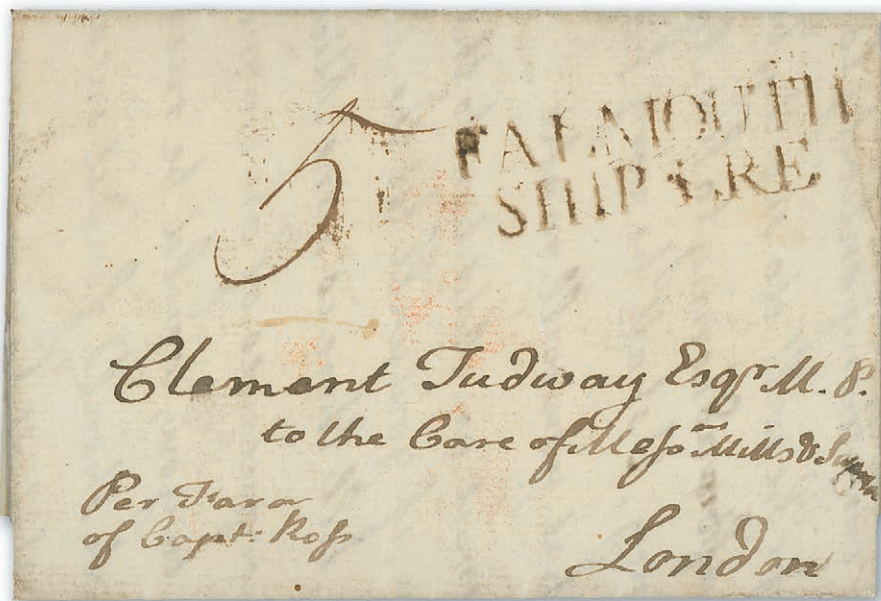 5
FALMOUTH
SHIP LRE
Clement Tudway Esqr. M. P.
to the Care of Messrs Mills &
Per Favor
of Capt: Ross
London